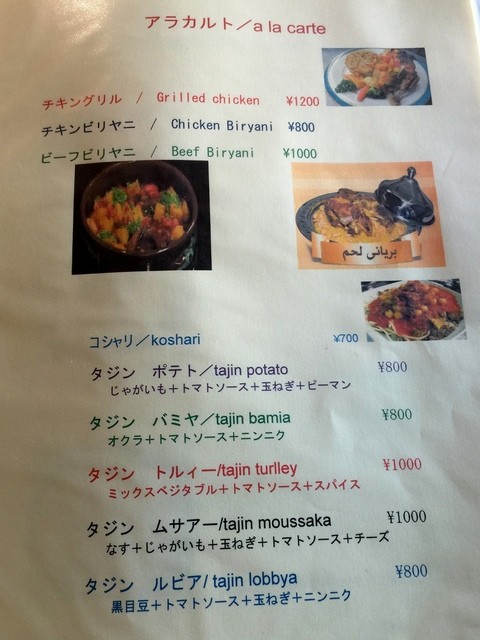 アラカルト／a la carte
チキングリル / Grilled chicken ¥1200
チキンビリヤニ / Chicken Biryani ¥800
ビーフビリヤニ / Beef Biryani ¥1000
برياني لحم
コシャリ／koshari ¥700
タジン ポテト／tajin potato ¥800
じゃがいも＋トマトソース＋玉ねぎ＋ピーマン
タジン バミヤ／tajin bamia ¥800
オクラ＋トマトソース＋ニンニク
タジン トルィー/tajin turlley ¥1000
ミックスベジタブル＋トマトソース＋スパイス
タジン ムサアー/tajin moussaka ¥1000
なす＋じゃがいも＋玉ねぎ＋トマトソース＋チーズ
タジン ルビア/ tajin lobbya ¥800
黒目豆＋トマトソース＋玉ねぎ＋ニンニク